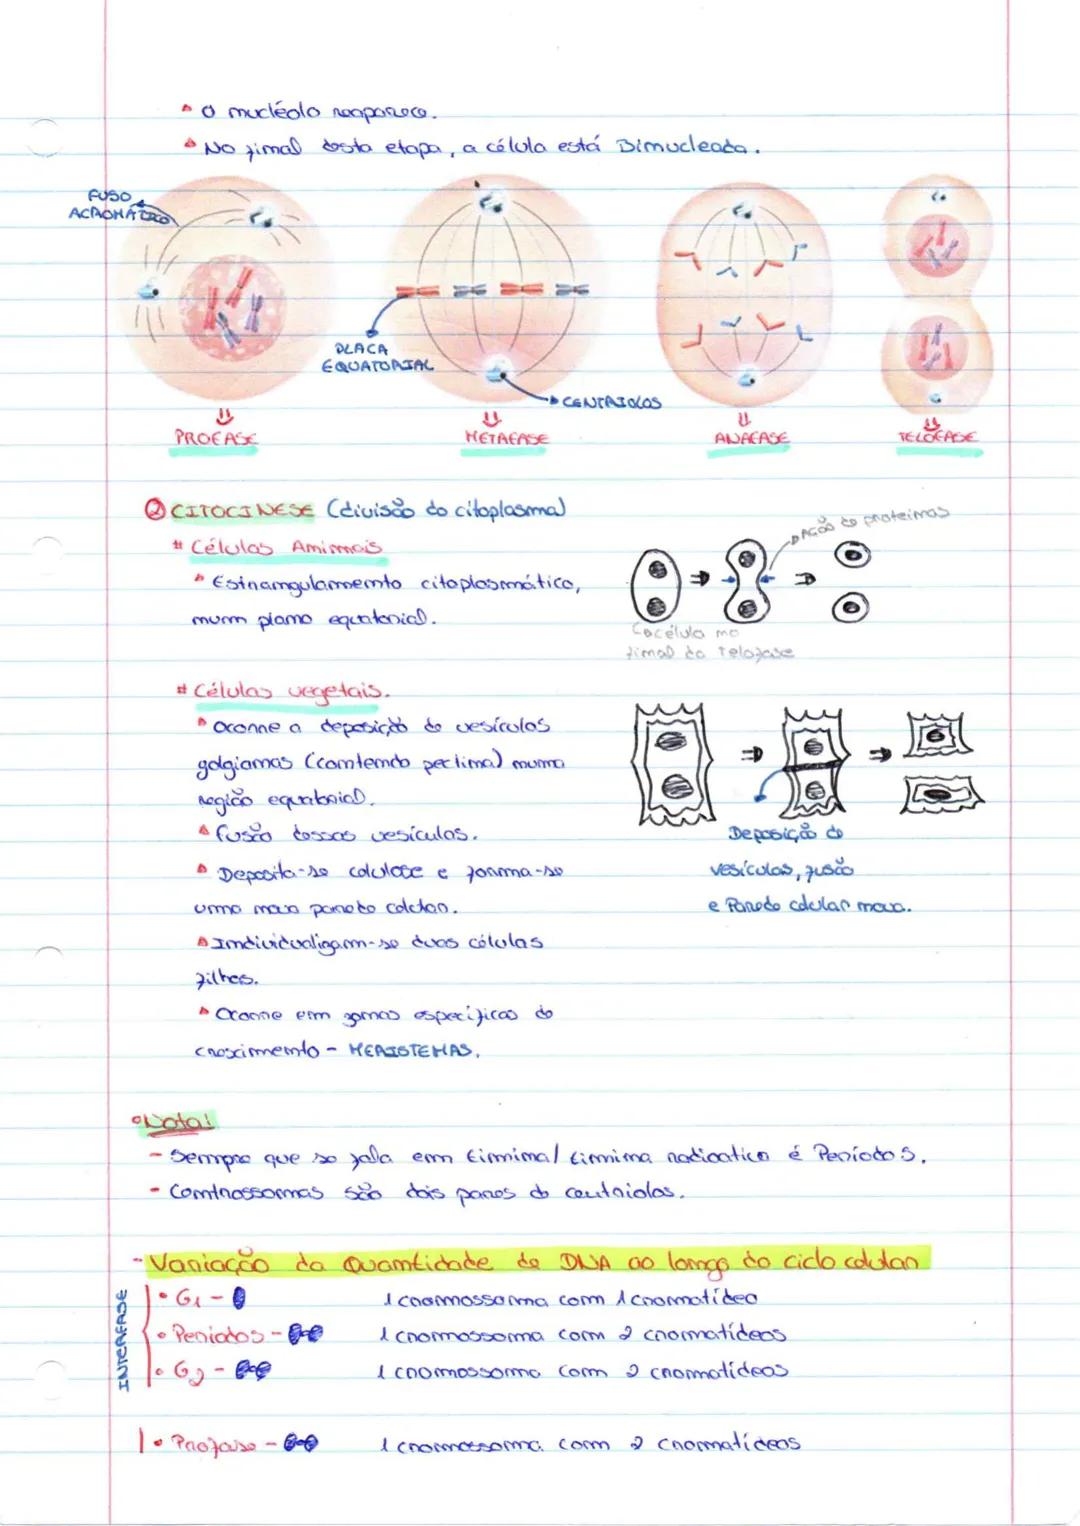 O nucléolo reaparece.
No final desta etapa, a célula está Binucleada.
FUSO
ACROMÁTICO
PLACA
EQUATORIAL
CENTRIOLOS
PROFASE
METAFASE
ANAFASE
TELOFASE
② CITOCINESE (divisão do citoplasma)
# Células Animais
Ação de proteinas
Estrangulamento citoplasmático,
num plano equatorial.
célula no
final da Telofase
# Células vegetais.
Ocorre a deposição de vesículas
golgianas (contendo pectina) numa
região equatorial.
Fusão dessas vesículas.
Deposição de
Deposita-se celulose e forma-se
vesículas, fusão
uma nova parede celular.
e Parede celular nova.
Individualizam-se duas células
filhas.
Ocorre em zonas especificas de
crescimento - MERISTEMAS.
Nota!
- Sempre que se fala em timina/timina radioativa é Período S.
- Centrossomas são dois pares de centriolos.
- Variação da Quantidade de DNA ao longo do ciclo celular
INTERFASE
• G1 - 1 cromossoma com 1 cromatídeo
• Período S - 1 cromossoma com 2 cromatídeos
• G2 - 1 cromossoma com 2 cromatídeos
• Profase - 1 cromossoma com 2 cromatídeos